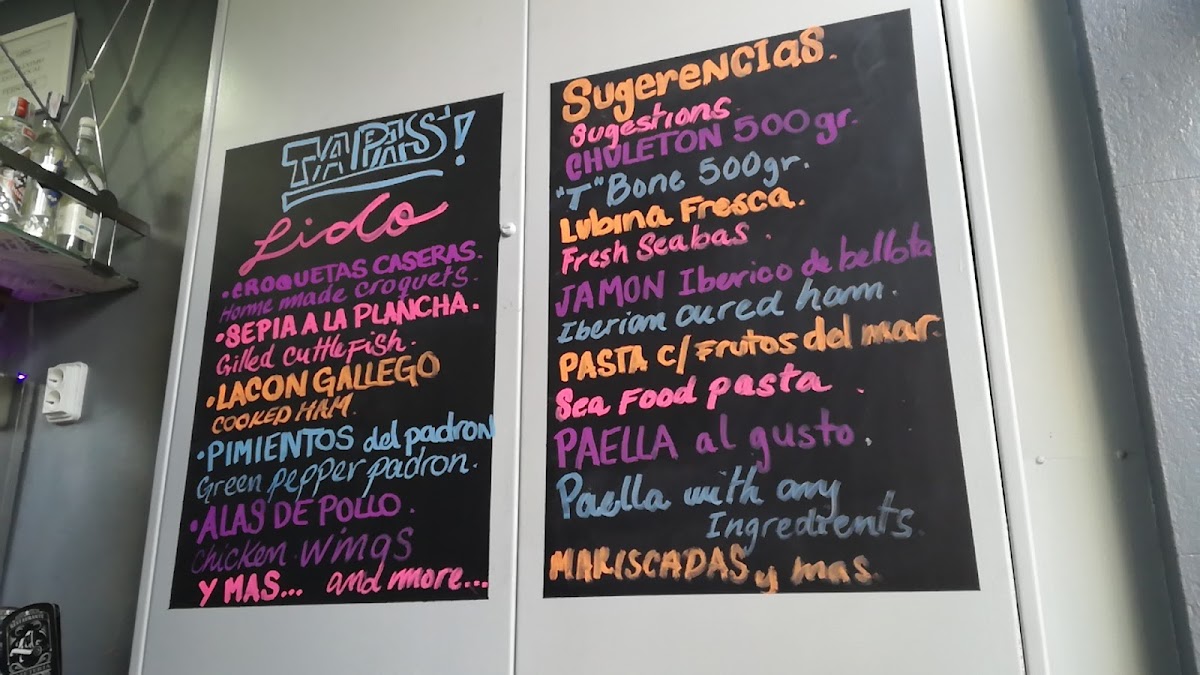 TAPAS!
Lido
• CROQUETAS CASERAS.
Home made croquets.
• SEPIA A LA PLANCHA.
Gilled cuttleFish.
• LACON GALLEGO
COOKED HAM.
• PIMIENTOS del padron
Green pepper padron.
• ALAS DE POLLO.
Chicken wings
Y MAS... and more...
Sugerencias.
Sugestions.
CHULETON 500 gr.
"T" Bone 500gr.
Lubina Fresca.
Fresh Seabas.
JAMON Iberico de bellota
Iberian cured ham.
PASTA C/ Frutos del mar.
Sea Food pasta.
PAELLA al gusto.
Paella with any
Ingredients.
MARISCADAS y mas.